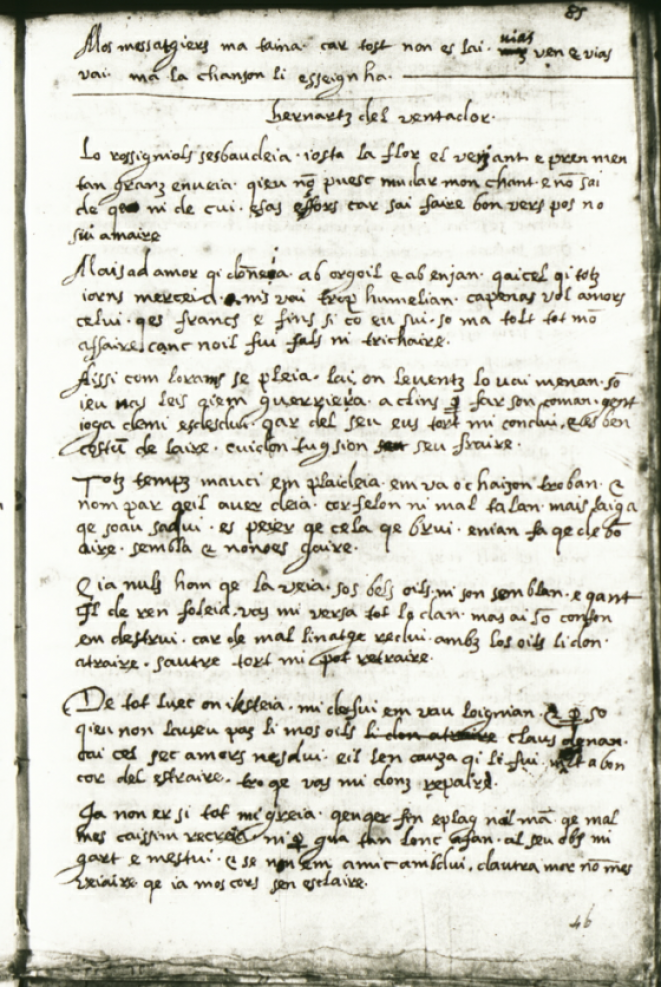 85
Mos messatgiers ma taina. car tost non es lai. vias ven & vias
vai. ma la chanson li esseignha.
bernartz del ventador.
Lo rossigniols sesbaudeia. iosta la flor el verjant. e pren men
tan granz enveia. qieu nō puesc mudar mon chant. e nō sai
de ni de cui. esas effors car sai faire bon vers pos no
sui amaire
Mais ad amor qi dōneia. ab orgoil & ab enjan. qaicel qi totz
iorns merceia. vai trop humelian. capenas vol amors
celui. qes francs e fins si co eu sui. so ma tolt tot mō
affaire canc noil fui fals ni trichaire.
Aissi com lorams se pleia. lai on leventz lo vai menan. sō
ieu vas leis qiem guerriera. aclins far son coman. gent
ioga demi esdesdui. qar del seu eus tort mi condui. & es ben
costū de laire. cuidon tug sion seu fraire.
Totz tempz mauci em plaideia. em va ochaizon troban. &
nom par qeil aver deia. cor felon ni mal talan. mais faiga
qe soau sadui. es peier qe cela qe brui. enian fa qe de bō
aire. sembla & nonoes gaire.
& ia nuls hom qe la veia. sos bels oils. ni son semblan. e qant
il de ren foleia. vas mi versa tot lo dan. mas ai sō confon
em destrui. car de mal linatge redui. ambz los oils li don.
atraire. sautre tort mi pot retraire.
De tot luec on ilesteia. mi desui em vau loignian. & so
qieu non laveu pas li mos oils li claus denan.
cai cel sec amors nesdui. eil len cauza qi li fui. a bon
cor del estraire. tro qe vas mi donz repaire.
Ja non er si tot mi greia. qenqer fin e plag noil mā. qe mal
mes caissim recreia ni gua tan lonc afan. al seu obs mi
gart e mestui. & se non em amic amsdui. dautra mor nō mes
veiaire qe ia mos cors sen esclaire.
46